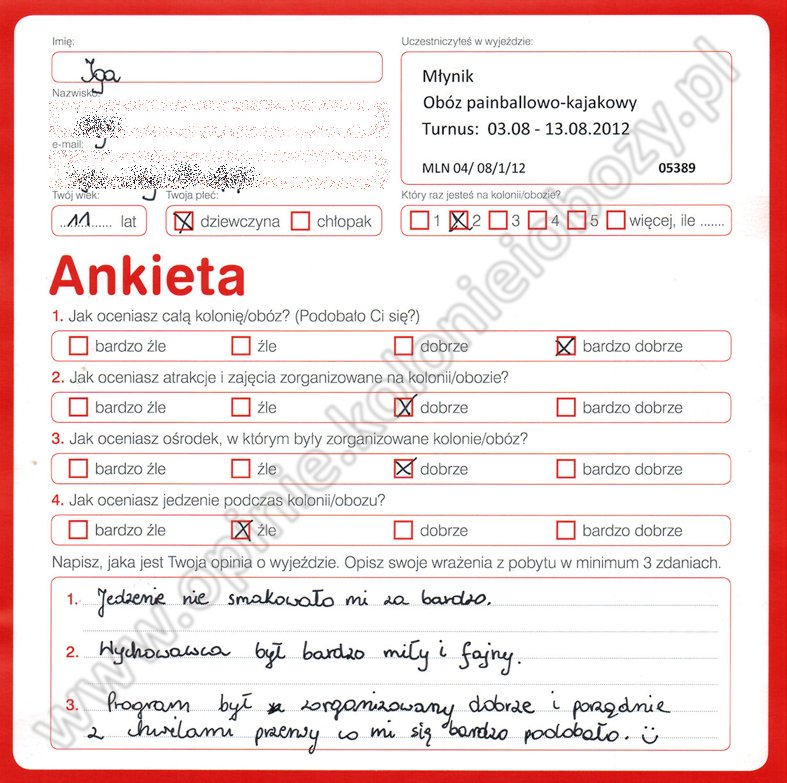 Imię:
Iga
Nazwisko:
e-mail:
Twój wiek:
11 lat
Twoja płeć:
dziewczyna chłopak
Uczestniczyłeś w wyjeździe:
Młynik
Obóz painballowo-kajakowy
Turnus: 03.08 - 13.08.2012
MLN 04/ 08/1/12 05389
Który raz jesteś na kolonii/obozie?
1 2 3 4 5 więcej, ile .......
Ankieta
1. Jak oceniasz całą kolonię/obóz? (Podobało Ci się?)
bardzo źle źle dobrze bardzo dobrze
2. Jak oceniasz atrakcje i zajęcia zorganizowane na kolonii/obozie?
bardzo źle źle dobrze bardzo dobrze
3. Jak oceniasz ośrodek, w którym były zorganizowane kolonie/obóz?
bardzo źle źle dobrze bardzo dobrze
4. Jak oceniasz jedzenie podczas kolonii/obozu?
bardzo źle źle dobrze bardzo dobrze
Napisz, jaka jest Twoja opinia o wyjeździe. Opisz swoje wrażenia z pobytu w minimum 3 zdaniach.
1. Jedzenie nie smakowało mi za bardzo.
2. Wychowawca był bardzo miły i fajny.
3. Program był zorganizowany dobrze i porządnie
z chwilami przerwy co mi się bardzo podobało. ☺
www.opinie.kolonieiobozy.pl